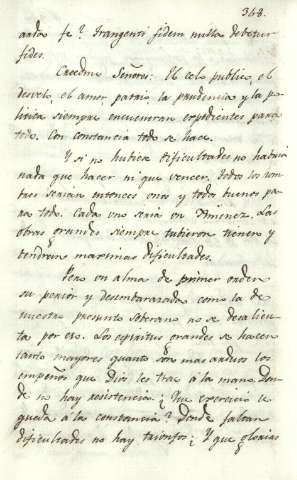 368.
anda fe? Frangenti fidem nulla debetur
fides.
Creedme Señores: El celo publico, el
desvelo, el amor patrio, la prudencia y la po-
litica siempre encuentran expedientes para
todo. Con constancia todo se hace.
Y si no hubiera dificultades no habria
nada que hacer ni que vencer. Todos los hom-
bres serian entonces unos y todos buenos pa-
ra todo. Cada uno seria un Ximenez. Las
obras grandes siempre tubieron tienen y
tendrán maximas dificultades.
Pero un alma de primer orden
superior y desembarazada como la de
nuestro presunto Soberano no se desalien-
ta por eso. Los espiritus grandes se hacen
tanto mayores quanto son mas arduos los
empeños que Dios les trae á la mano. Don-
de no hay resistencia ¿Que exercicio le
queda á la constancia? Donde faltan
dificultades no hay triunfos; Y que glorias